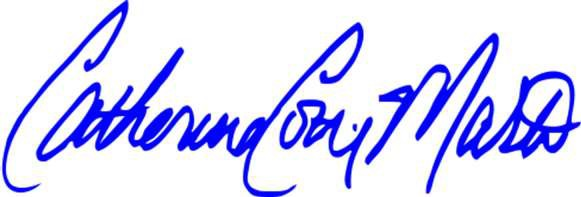 Catherine Cortez Masto